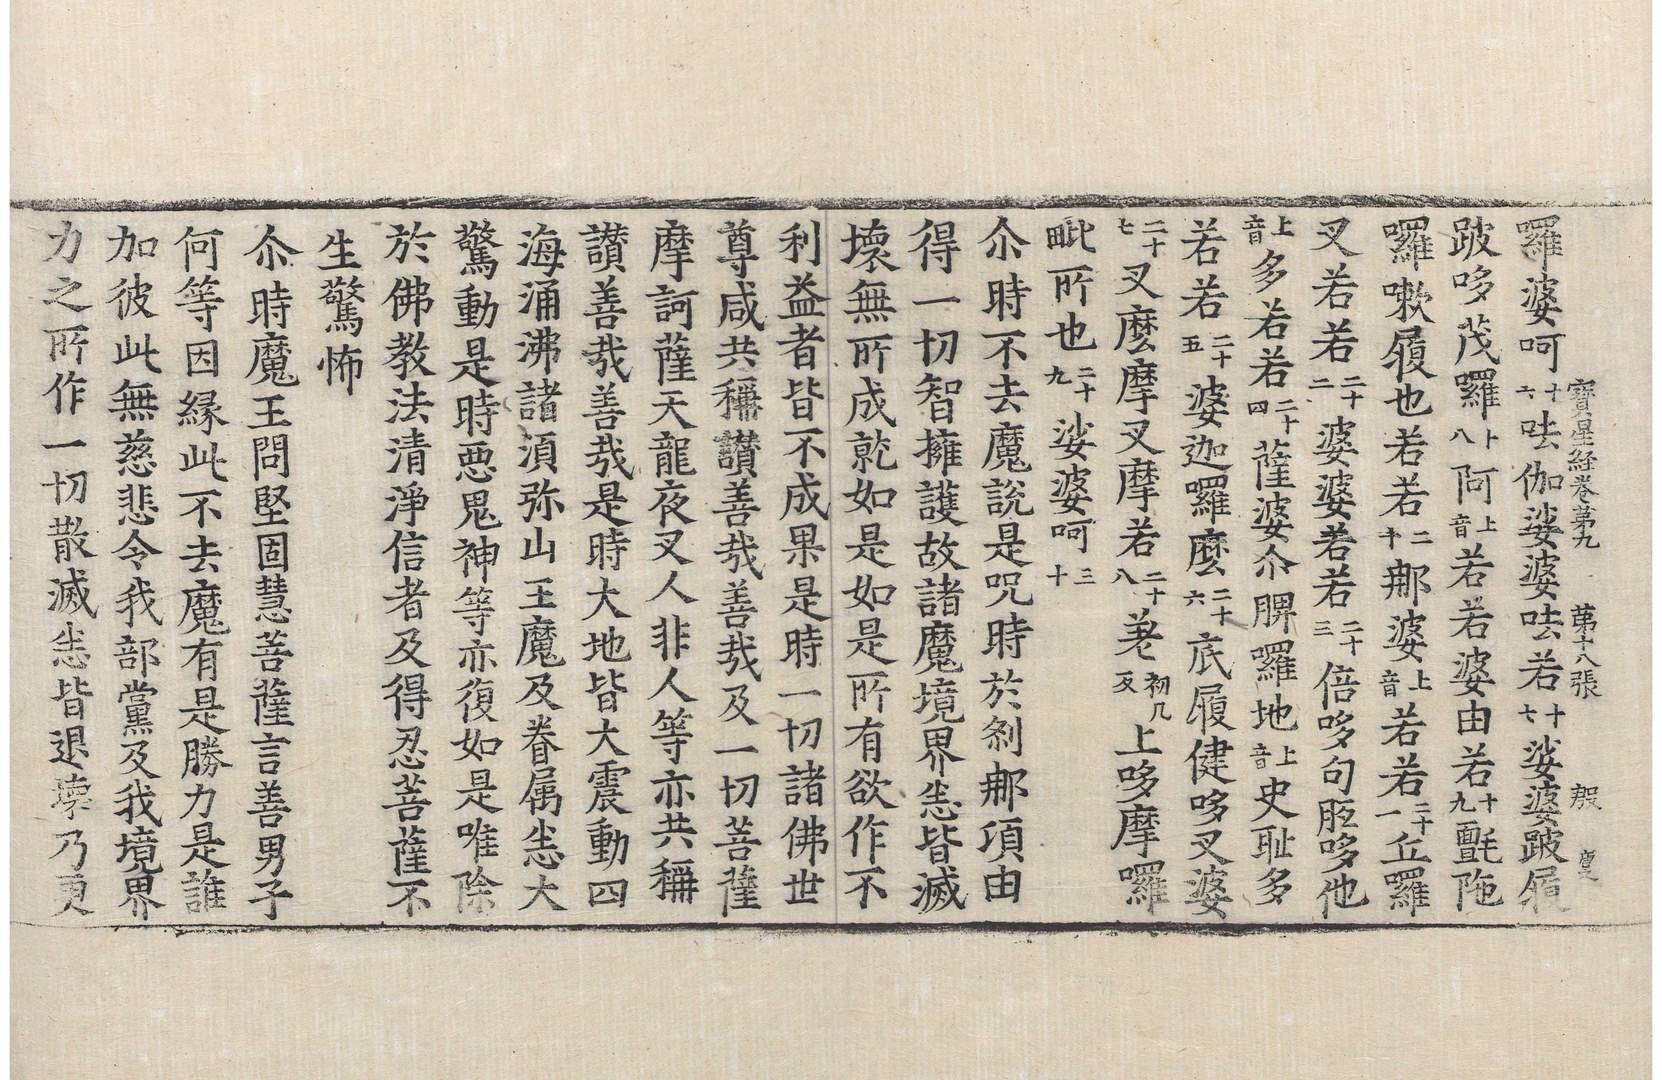 寶星經卷第九　第十八張　殷　慶
羅婆呵十六呿伽娑婆呿若十七娑婆跛履
跛哆茂囉十八阿上音若若婆由若十九氎陁
囉嗽履也若若二十郍婆上音若若二十一丘羅
叉若若二十二婆婆若若二十三倍哆句胝哆他
上音多若若二十四薩婆尒脾囉地上音史耻多
若若二十五婆迦囉麽二十六底履健哆叉婆
二十七叉麽摩叉摩若二十八羗初几反上哆摩囉
毗所也二十九娑婆呵三十
尒時不去魔說是咒時於剎郍項由
得一切智擁護故諸魔境界悉皆滅
壞無所成就如是如是所有欲作不
利益者皆不成果是時一切諸佛世
尊咸共稱讃善哉善哉及一切菩薩
摩訶薩天龍夜叉人非人等亦共稱
讃善哉善哉是時大地皆大震動四
海涌沸諸須弥山王魔及眷属悉大
驚動是時悪鬼神等亦復如是唯除
於佛教法清淨信者及得忍菩薩不
生驚怖
尒時魔王問堅固慧菩薩言善男子
何等因緣此不去魔有是勝力是誰
加彼此無慈悲令我部黨及我境界
力之所作一切散滅悉皆退壞乃更